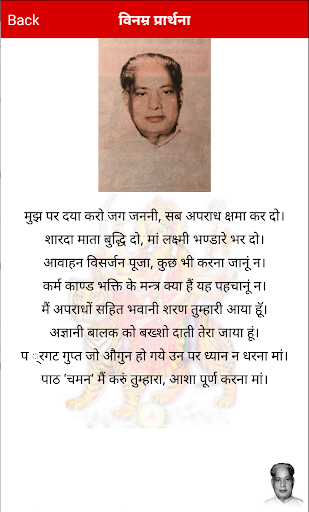 Back
विनम्र प्रार्थना
मुझ पर दया करो जग जननी, सब अपराध क्षमा कर दो।
शारदा माता बुद्धि दो, मां लक्ष्मी भण्डारे भर दो।
आवाहन विसर्जन पूजा, कुछ भी करना जानूं न।
कर्म काण्ड भक्ति के मन्त्र क्या हैं यह पहचानूं न।
मैं अपराधों सहित भवानी शरण तुम्हारी आया हूँ।
अज्ञानी बालक को बख्शो दाती तेरा जाया हूं।
प ्रगट गुप्त जो औगुन हो गये उन पर ध्यान न धरना मां।
पाठ ‘चमन’ मैं करुं तुम्हारा, आशा पूर्ण करना मां।